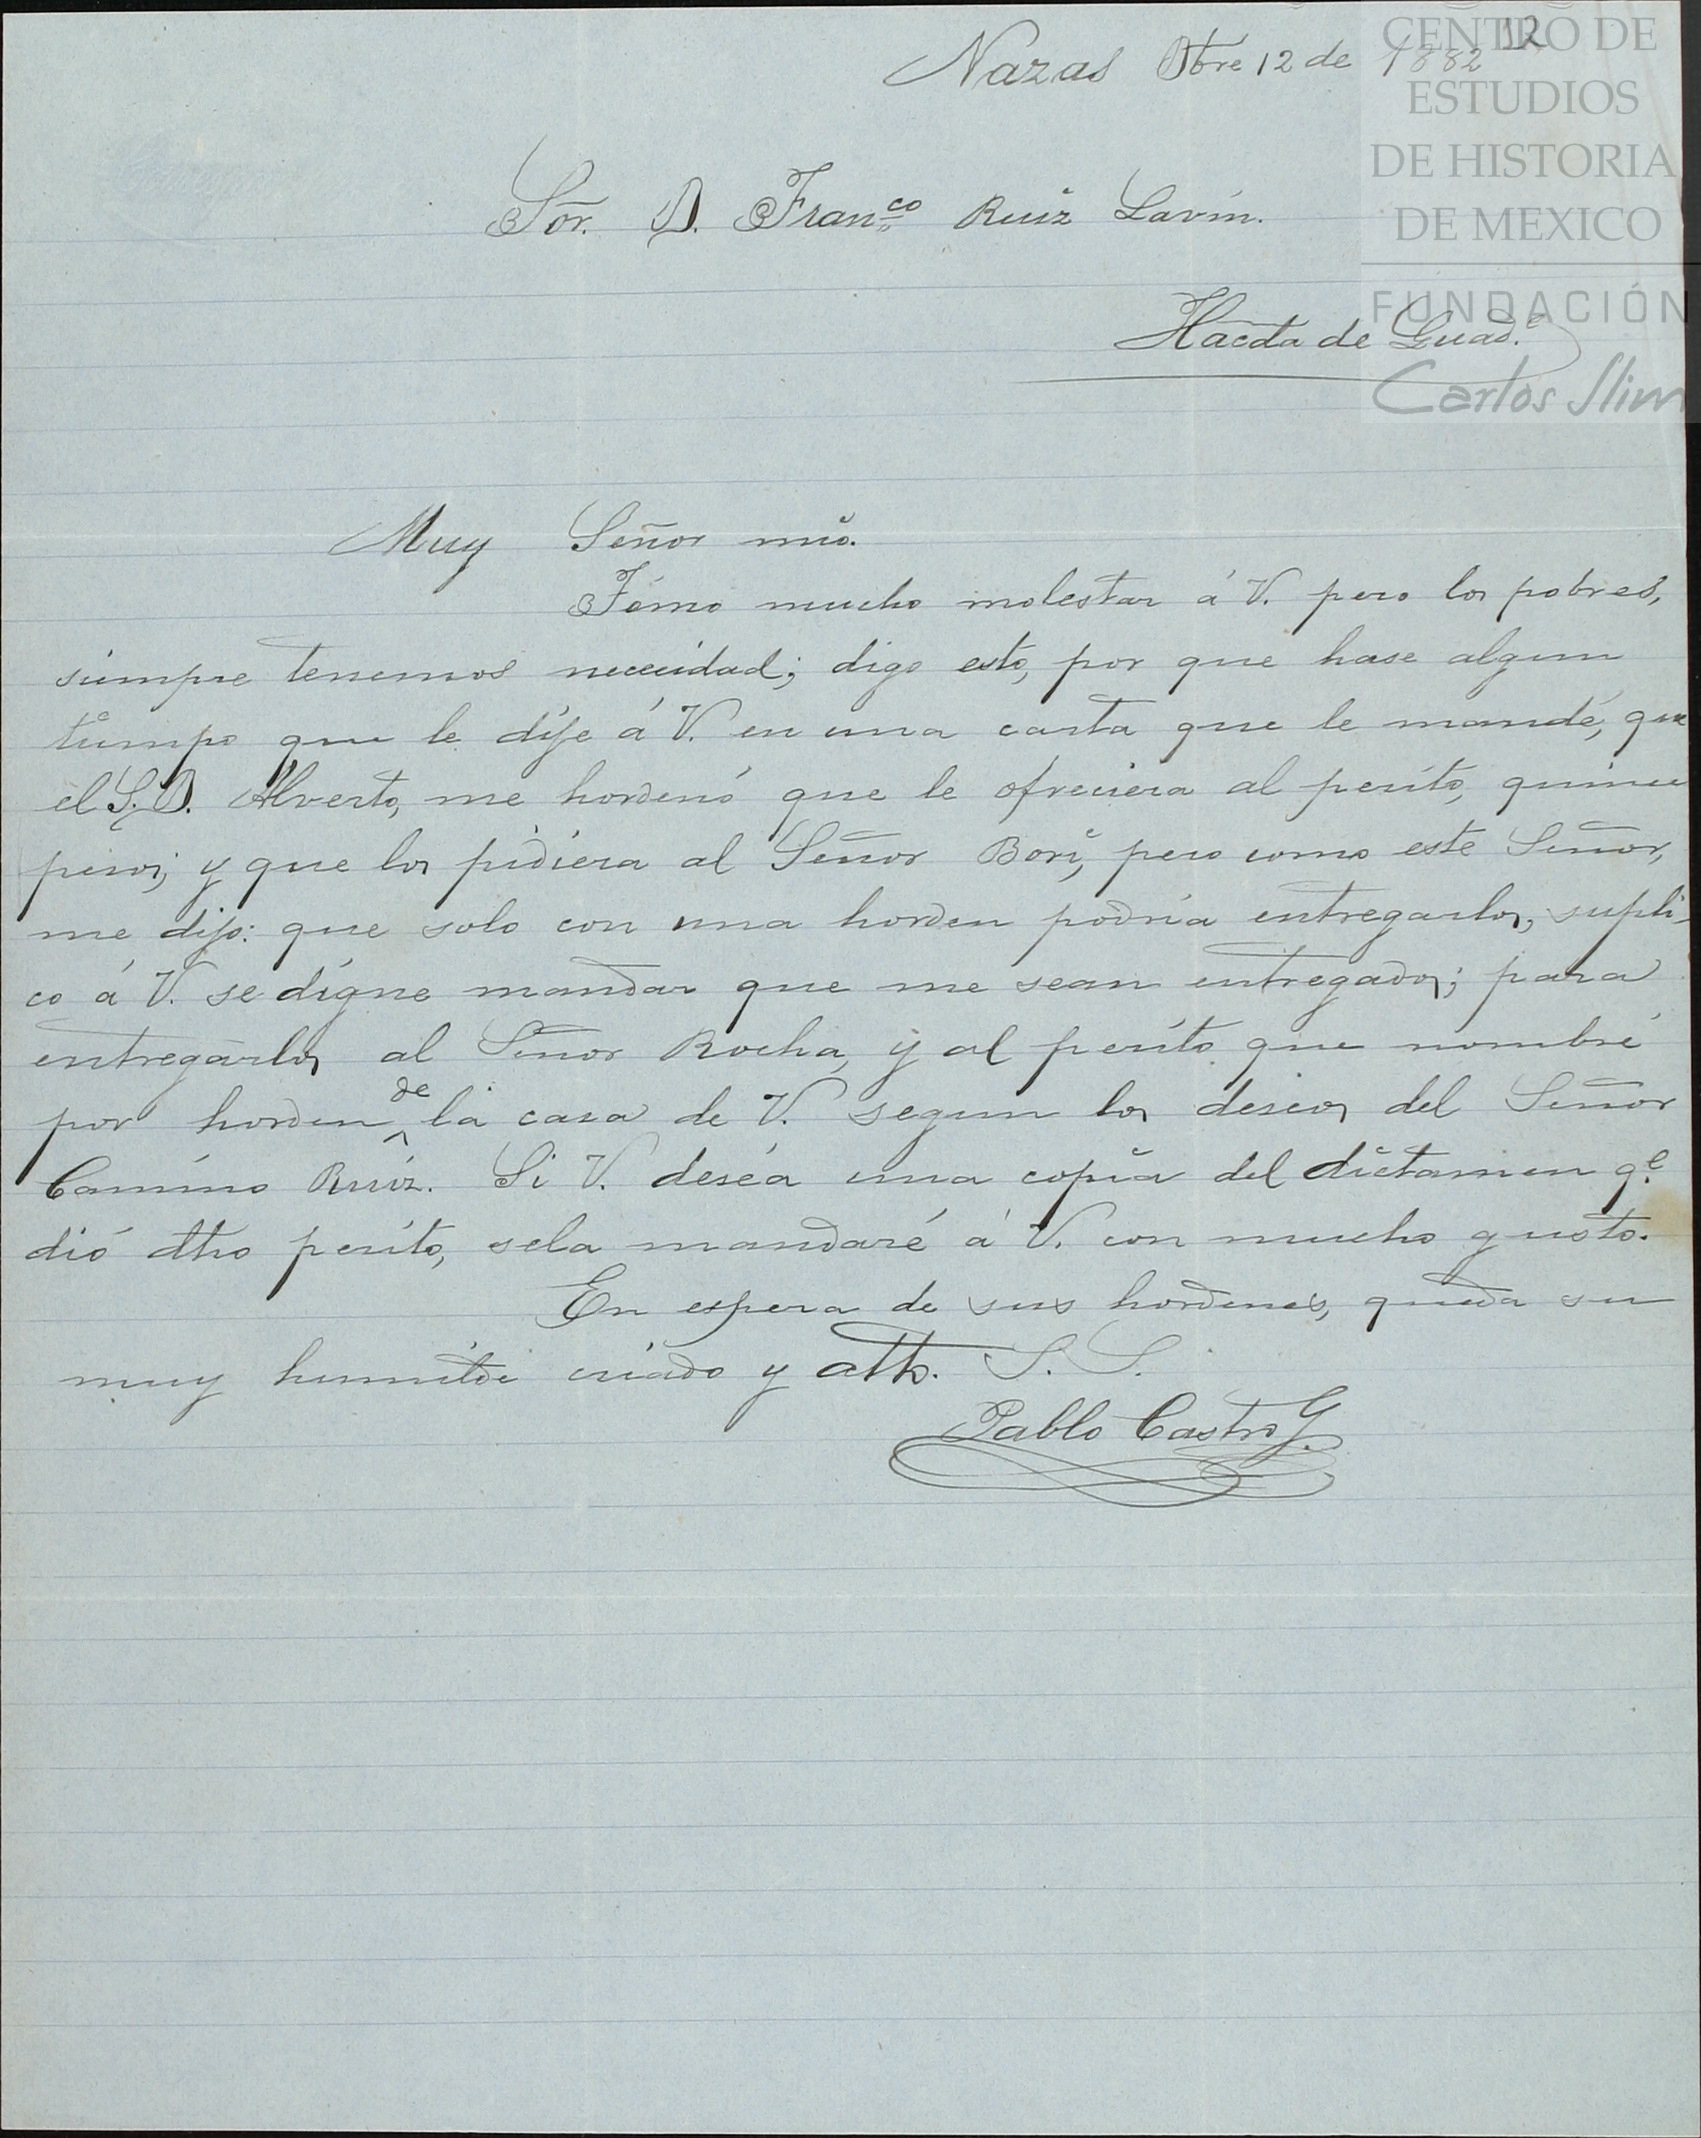 12
Nazas Obre 12 de 1882
CENTRO DE
ESTUDIOS
DE HISTORIA
DE MEXICO
FUNDACIÓN
Carlos Slim
Sor. D. Franco Ruiz Lavin.
Hacda de Guade.
Muy Señor mio.
Témo mucho molestar á V. pero los pobres,
siempre tenemos necesidad; digo esto, por que hase algun
tiempo que le dije á V. en una carta que le mandé, que
el S.D. Alverto, me hordenó que le ofreciera al perito, quince
pesos; y que los pidiera al Señor Bori, pero como este Señor,
me dijo: que solo con una horden podría entregarlos, supli-
co á V. se digne mandar que me sean entregados; para
entregárlos al Señor Rocha, y al perito que nombré
por horden de la casa de V. segun los deseos del Señor
Camino Ruiz. Si V. deséa una copia del dictamen qe.
dió dho perito, sela mandaré á V. con mucho gusto.
En espera de sus hordenes, queda su
muy humilde criado y atto. S. S.
Pablo Castro G.